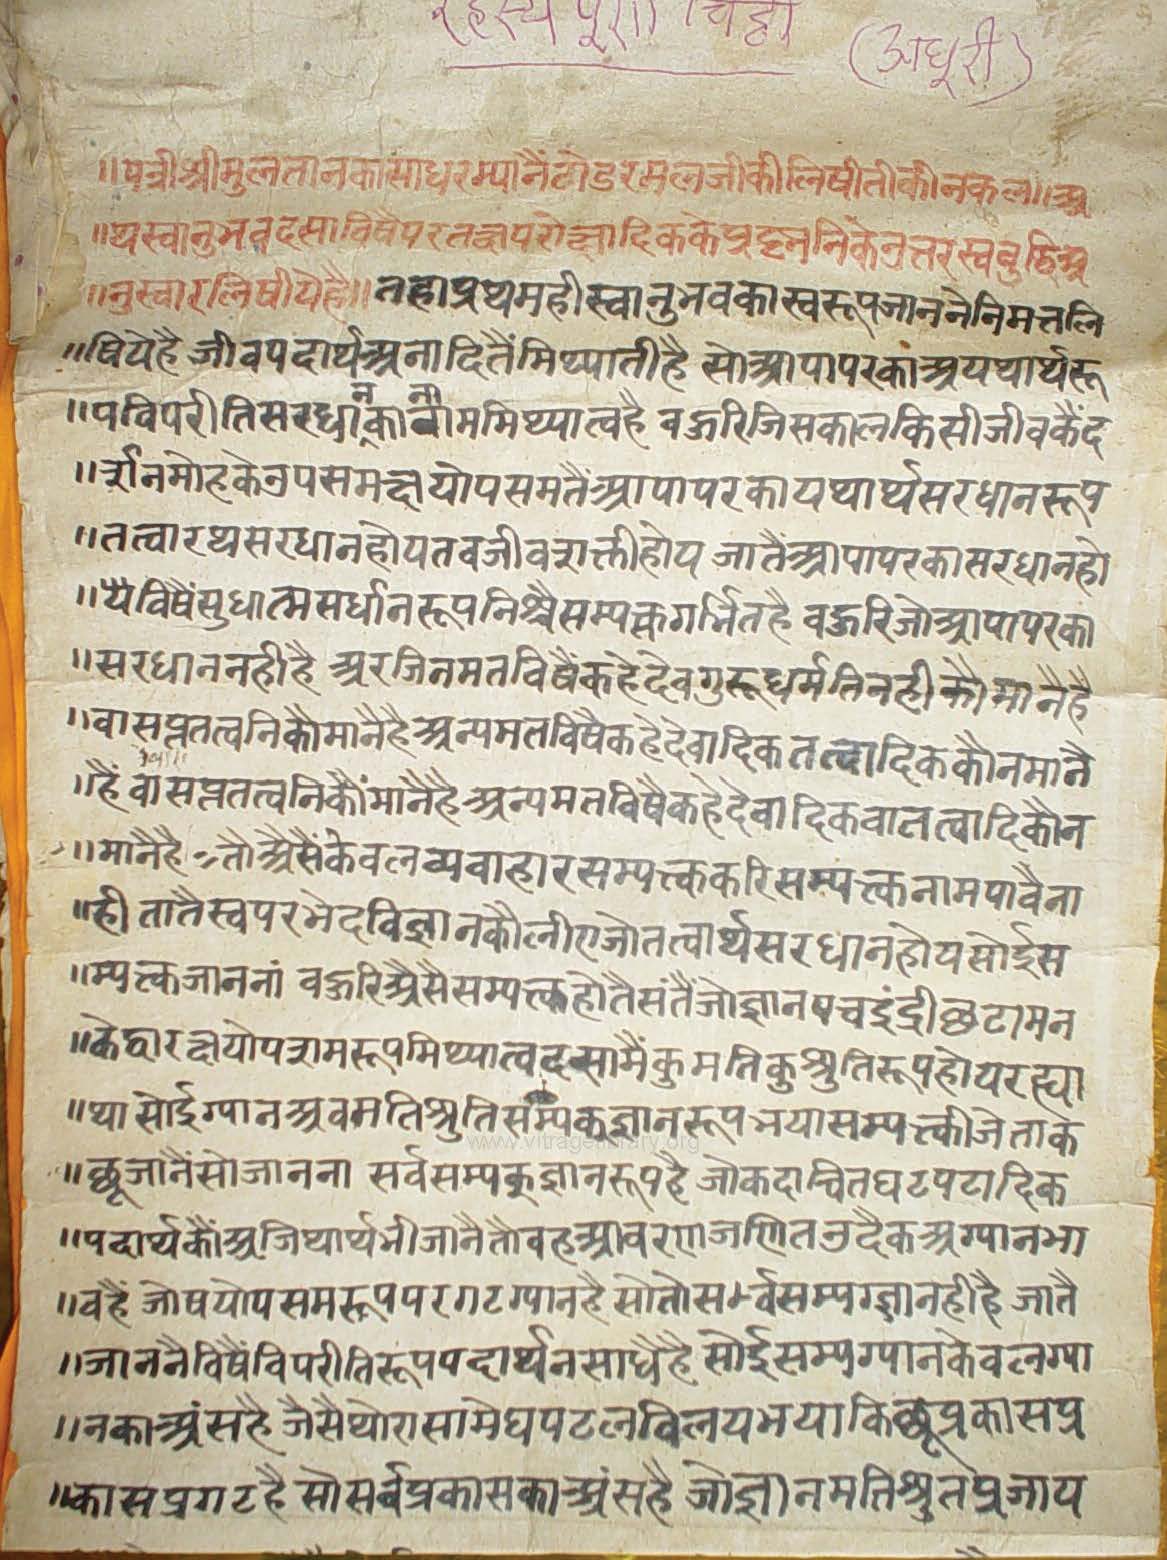 रहस्य पूर्ण चिठ्ठी
(अधूरी)
॥पत्रीश्रीमुलतानकासाधरम्यानैंटोडरमलजीकीलिषीतीकीनकल॥अ
॥थस्वानुभवदसाविषैपरतक्षपरोक्षादिककेप्रश्ननिकेउत्तरस्वबुधिअ
॥नुस्वारलिषीयेहै॥तहाप्रथमहीस्वानुभवकास्वरूपजाननैनिमत्तलि
॥षियेहै जीवपदार्थअनादितैंमिथ्यातीहै सोआपापरकांअयथार्थरू
॥पविपरीतिसरधानकानाममिथ्यात्वहै बहुरिजिसकालकिसीजीवकैंद
॥र्शनमोहकेउपसमक्षयोपसमतैंआपापरकायथार्थसरधानरूप
॥तत्वारथसरधानहोयतबजीवशक्तीहोय जातैंआपापरकासरधानहो
॥यैविषैंसुधात्मसर्धानरूपनिश्चैसम्यक्तगर्भितहै बहुरिजोआपापरका
॥सरधाननहीहै अरजिनमतविषैंकहेदेवगुरूधर्मतिनहीकौमानैहै
॥वासप्ततत्वनिकौमानैहैअन्यमतविषैकहेदेवादिकतत्वादिककौनमानै
॥हैं वासप्ततत्वनिकौंमानैहैअन्यमतविषैकहेदेवादिकवातत्वादिकौन
॥मानैहै तौअैसैंकेवलव्यवाहारसम्यक्तकरिसम्यक्तनामपावैना
॥ही तातैस्वपरभेदविज्ञानकौलीएजोतत्वार्थसरधानहोयसोईस
॥म्यक्तजाननां बहुरिअैसैसम्यक्तहोतैसंतैंजोज्ञानपंचइंद्रीछटामन
॥केद्वारक्षयोपशमरूपमिथ्यात्वदसामैंकुमतिकुश्रुतिरूपहोयरह्या
॥था सोईग्यानअबमतिश्रुतिसम्यकज्ञानरूपभयासम्यक्तीजेताक
॥छूजानैंसोजानना सर्वसम्यक्ज्ञानरूपहै जोकदाचितघटपटादिक
॥पदार्थकौंअजिथार्थभीजानैतौवहआवरणजणितउदैकअग्यानभा
॥वहैं जोषयोपसमरूपपरगटग्यानहै सोतोसर्वसम्यग्ज्ञानहीहै जातै
॥जाननैविषैंविपरीतिरूपपदार्थनसाधैहै सोईसम्यग्यानकेवलग्या
॥नकाअंसहै जैसैथोरासामेघपटलविलयभयाकिछूप्रकासप्र
॥कासप्रगटहै सोसर्वप्रकासकाअंसहै जोज्ञानमतिश्रुतप्रजाय
www.vitragelibrary.org